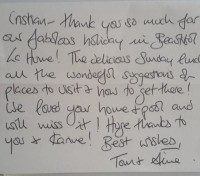 Cristian - thank you so much for
our fabulous holiday in Beautiful
Le Hume! The delicious Sunday lunch
all the wonderful suggestions of
places to visit & how to get there!
We loved your home & pool and
will miss it! Huge thanks to
you & Karine! Best wishes,
Tom &